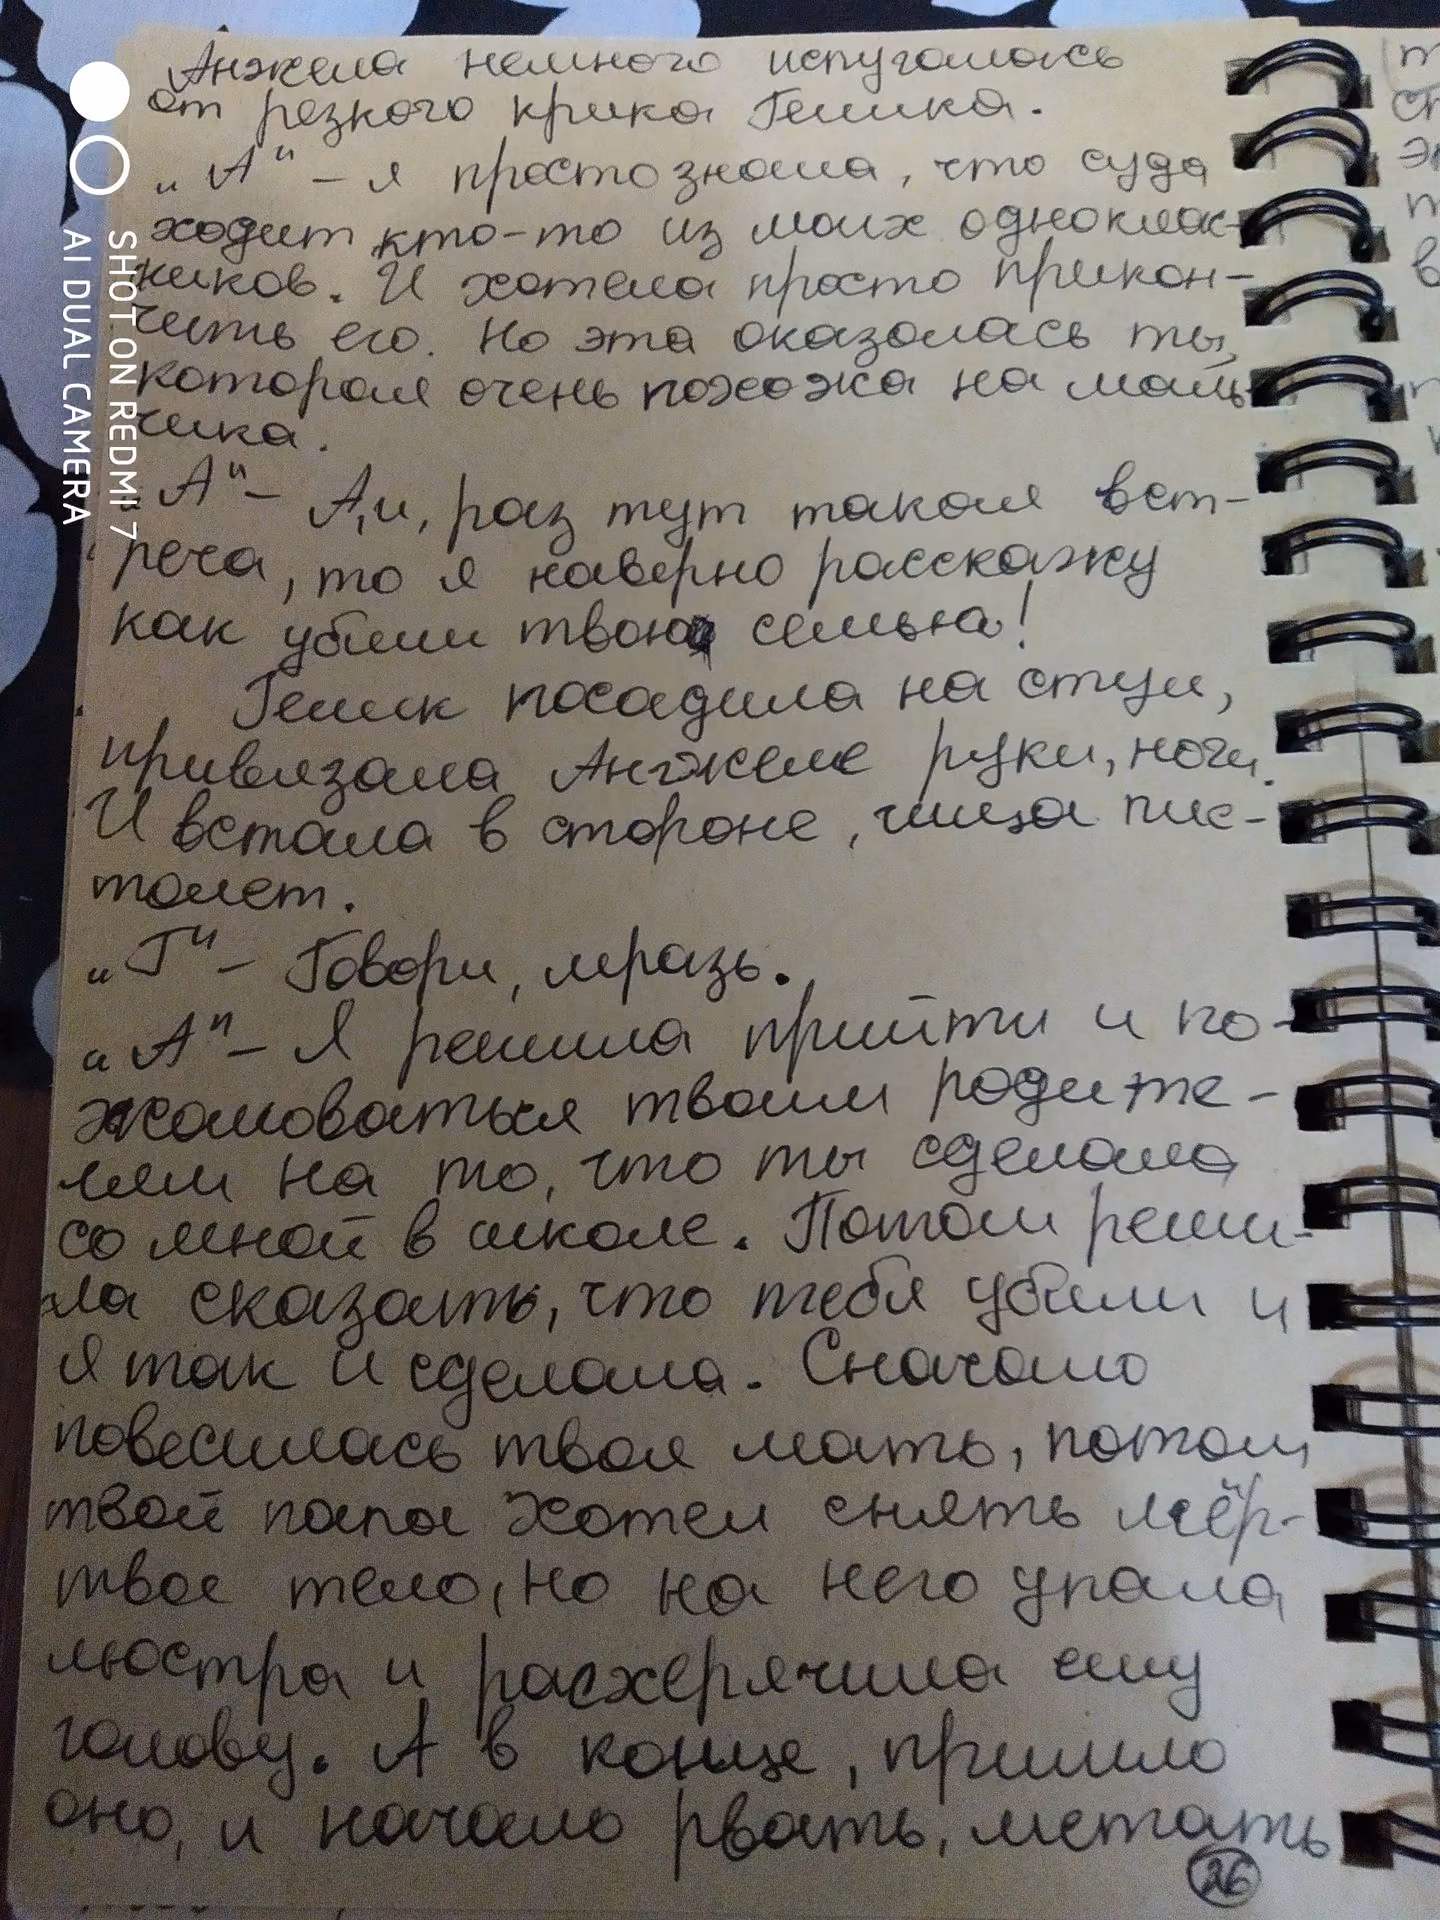 Анжела немного испугалась
от резкого крика Гешка.
„А" – я просто знала, что суда
ходит кто-то из моих одноклас-
ников. И хотела просто прикон-
чить его. Но эта оказалась ты,
которая очень похожа на маль-
чика.
„А" – А, и, раз тут такая вст-
реча, то я наверно расскажу
как убили твою семью!
Гешк посадила на стул,
привязала Анжеле руки, ноги.
И встала в стороне, чища пис-
толет.
„Г" – Говори, мразь.
„А" – Я решила прийти и по-
жаловаться твоим родите-
лям на то, что ты сделала
со мной в школе. Потом реши-
ла сказать, что тебя убили и
я так и сделала. Сначало
повесилась твоя мать, потом
твой папа хотел снять мёр-
твое тело, но на него упала
люстра и расхерячила ему
голову. А в конце, пришло
оно, и начало рвать, метать
26
SHOT ON REDMI 7
AI DUAL CAMERA